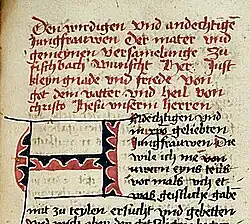 Den wirdigen vnd andechtigen
Jungfrauwen der mater vnd
gemeynen versamelunge zu
Eschbach wunscht
kleyn gnade vnd frede von
got dem vatter vnd heil von
christo Jhesu vnserm herren
Andechtigen vnd
in xpo geliebten
Jungfrauwen Die
wile ich me von
uwern eins teils
vor mals
was geistliche gabe
mit zu teylen ersucht vnd gebetten